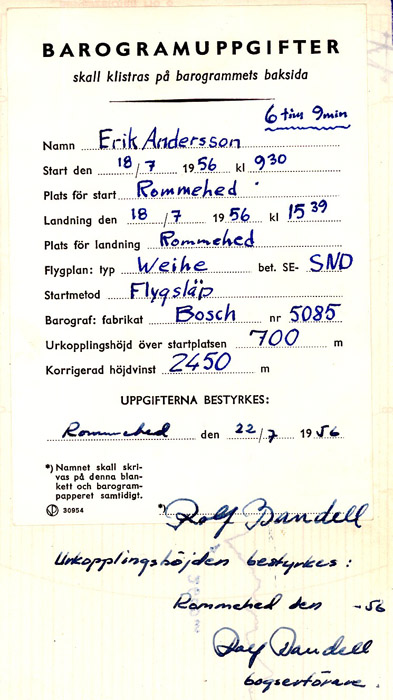 BAROGRAMUPPGIFTER
skall klistras på barogrammets baksida
6 tim 9min
Namn Erik Andersson
Start den 18/7 1956 kl 930
Plats för start Rommehed
Landning den 18/7 1956 kl 1539
Plats för landning Rommehed
Flygplan: typ Weihe bet. SE- SND
Startmetod Flygsläp
Barograf: fabrikat Bosch nr 5085
Urkopplingshöjd över startplatsen 700 m
Korrigerad höjdvinst 2450 m
UPPGIFTERNA BESTYRKES:
Rommehed den 22/7 1956
*) Namnet skall skri-
vas på denna blan-
kett och barogram-
papperet samtidigt.
30954
*) Rolf Bandell
Urkopplingshöjden bestyrkes:
Rommehed den -56
Rolf Bandell
bogserförare